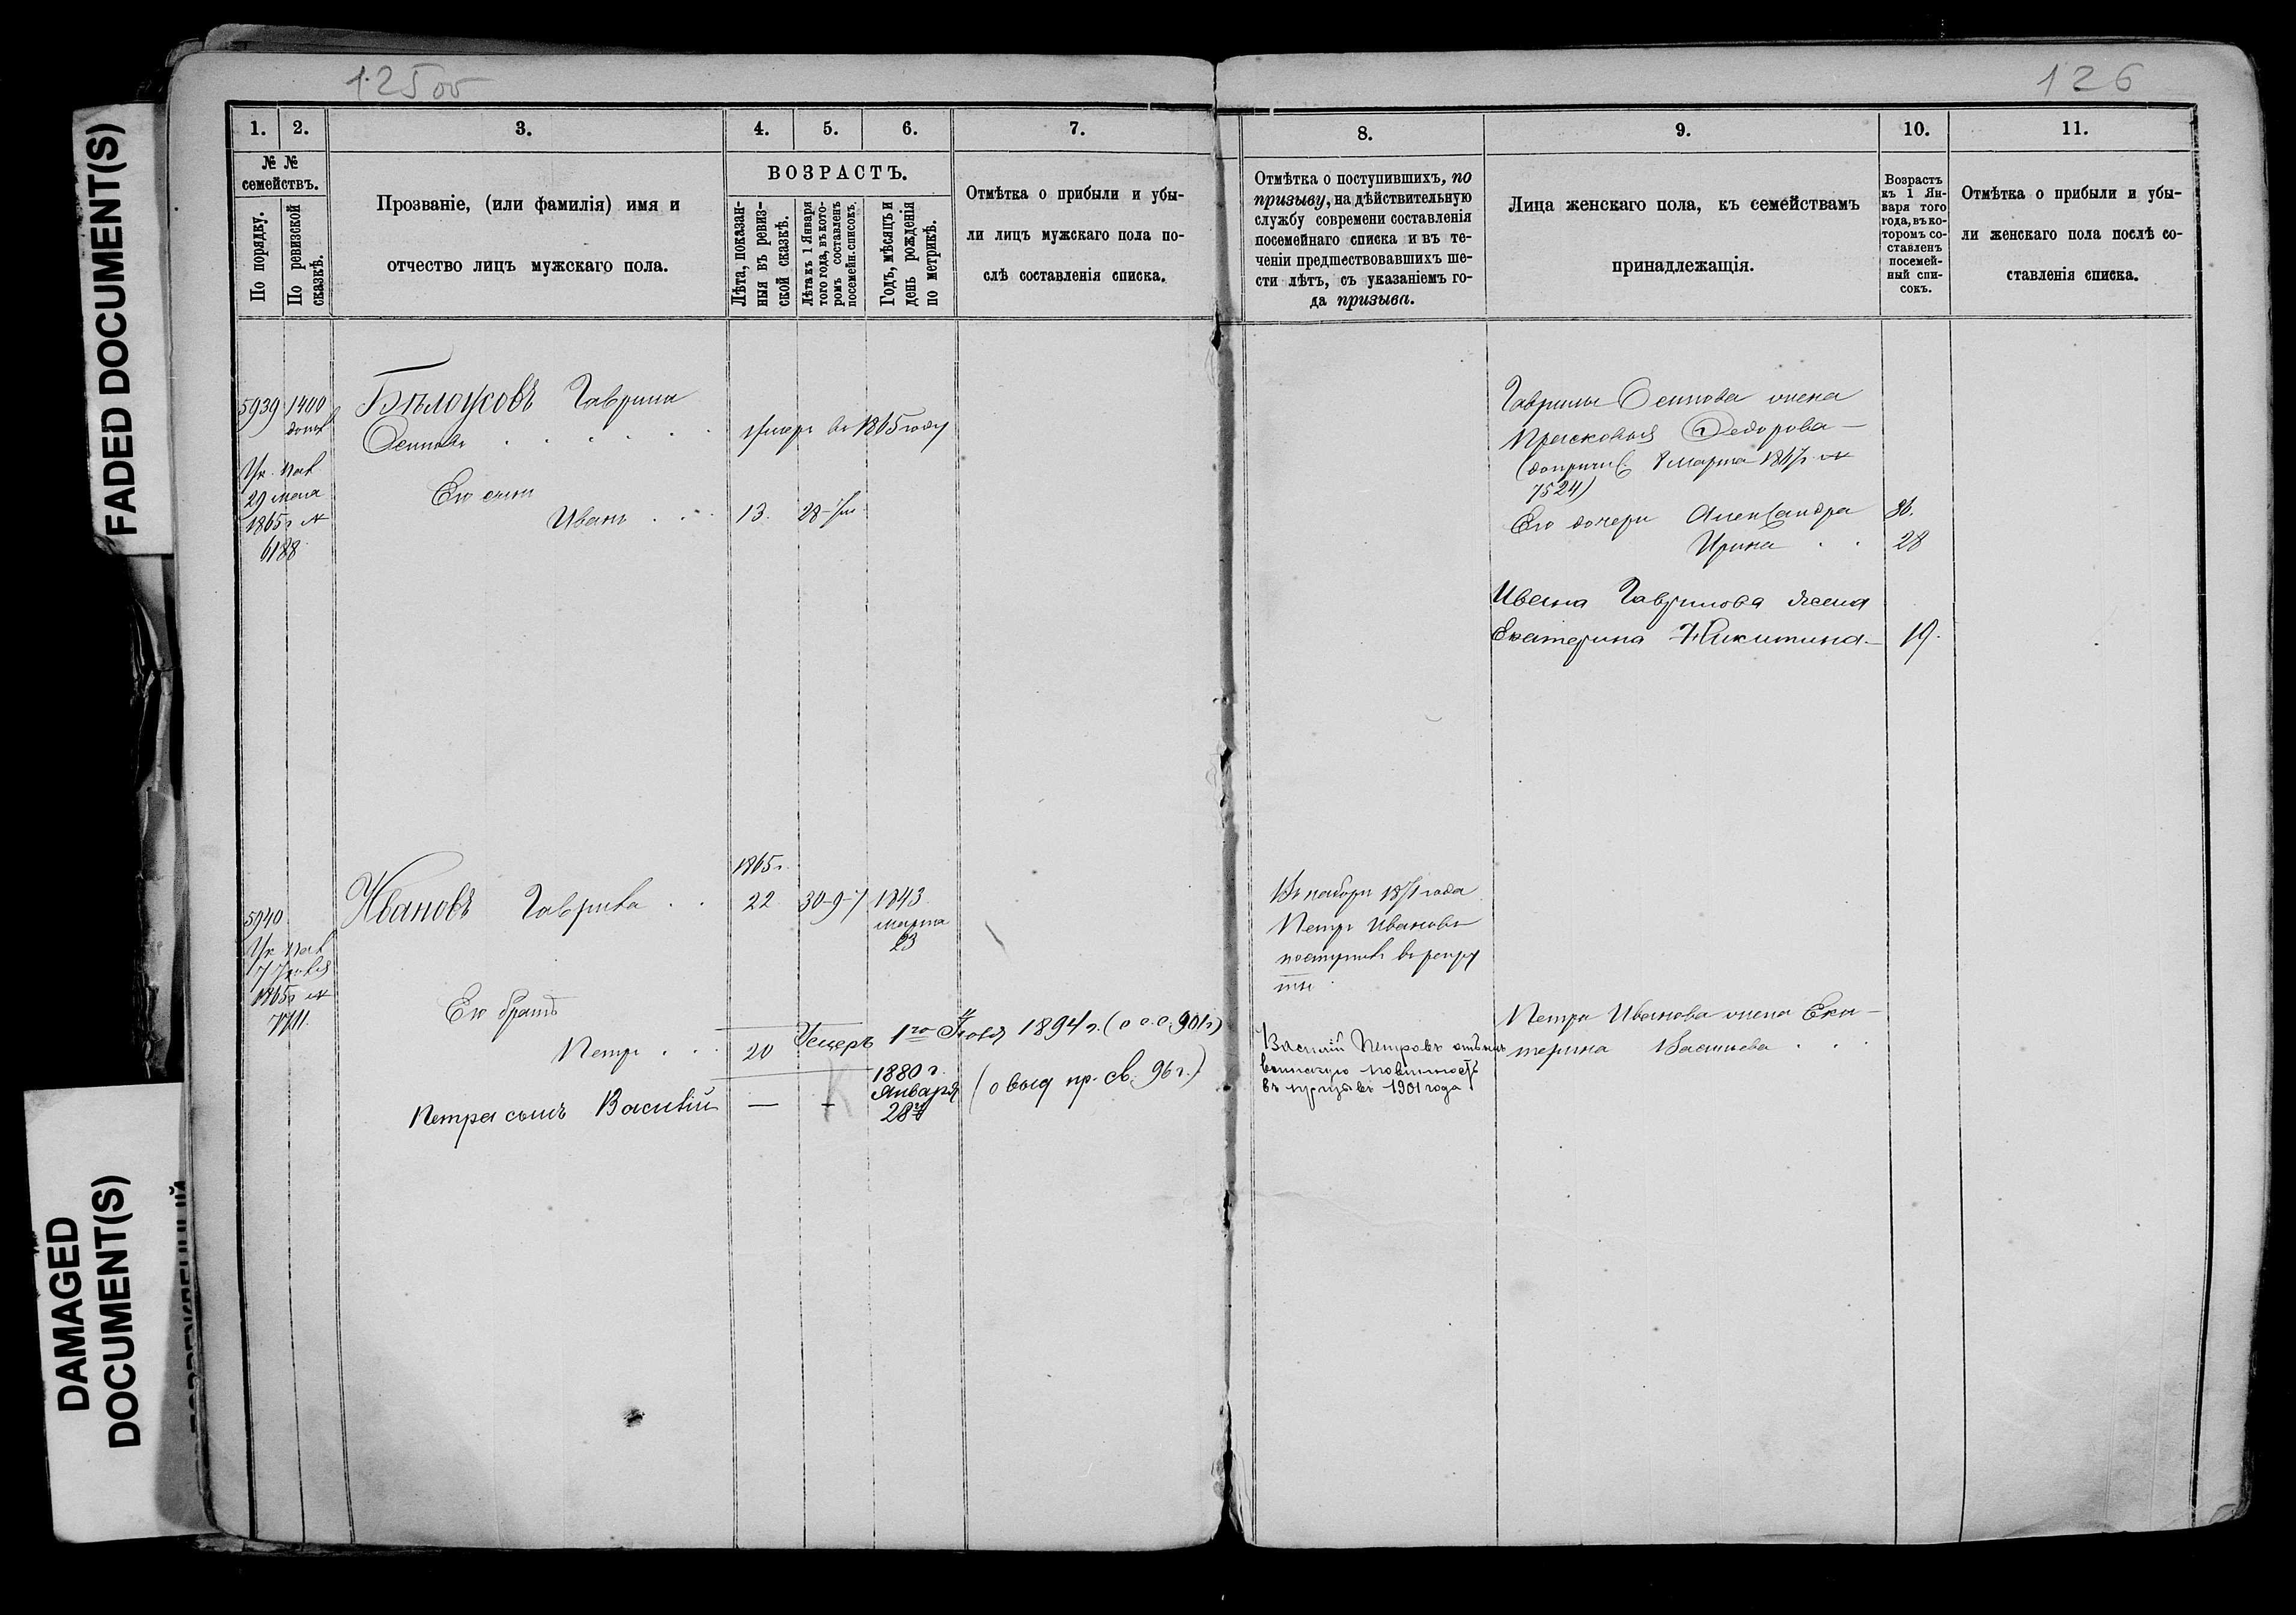 125об
126
FADED DOCUMENT(S)
DAMAGED
DOCUMENT(S)
1.
2.
3.
4.
5.
6.
7.
№ №
семействъ.
По порядку.
По ревизской
сказкѣ.
Прозваніе, (или фамилія) имя и
отчество лицъ мужскаго пола.
ВОЗРАСТЪ.
Лѣта, показан-
ныя въ ревиз-
ской сказкѣ.
Лѣта къ 1 Января
того года, въ кото-
ромъ составленъ
посемейн. списокъ.
Годъ, мѣсяцъ и
день рожденія
по метрикѣ.
Отмѣтка о прибыли и убы-
ли лицъ мужскаго пола по-
слѣ составленія списка.
5939
1400
Бѣлоусовъ Гаврила
Осиповъ
умеръ въ 1865 году
Ук. Пал.
29 мая
1865 г. №
6188
Его сынъ
Иванъ
13.
28
1865 г.
5940
Ивановъ Гаврила
22
30-9-7
1843
марта
23
Ук. Пал.
7 Іюля
1865 г. №
7711.
Его братъ
Петръ
20
Умеръ 1го Іюля 1894 г. (о.о.о. 901 г.)
Петра сынъ Василій
—
1880 г.
Января
28го
(о выд пр. св. 96 г.)
8.
9.
10.
11.
Отмѣтка о поступившихъ, по
призыву, на дѣйствительную
службу современи составленія
посемейнаго списка и въ те-
ченіи предшествовавшихъ ше-
сти лѣтъ, съ указаніемъ го-
да призыва.
Лица женскаго пола, къ семействамъ
принадлежащія.
Возрастъ
къ 1 Ян-
варя того
года, въ ко-
торомъ со-
ставленъ
посемей-
ный спи-
сокъ.
Отмѣтка о прибыли и убы-
ли женскаго пола послѣ со-
ставленія списка.
Гаврилы Осипова жена
Прасковья Федорова
марта
7524)
Его дочери Александра
36.
Ирина
28
Ивана Гаврилова жена
Екатерина Никитина
19.
Въ наборъ 1871 года
Петръ Ивановъ
поступилъ въ рекру
ты
Петра Иванова жена Ека-
терина Васильева
Василій Петровъ отбылъ
воинскую повинность
въ призывъ 1901 года